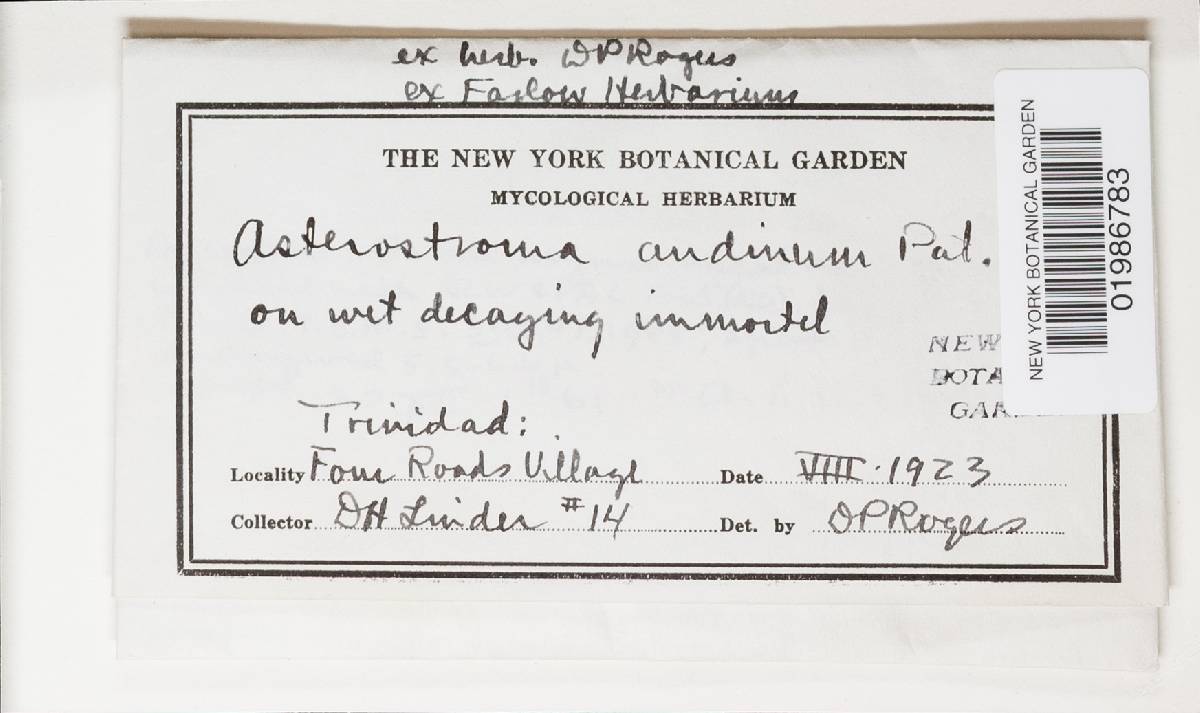 ex herb. DPRogers
ex Farlow Herbarium
THE NEW YORK BOTANICAL GARDEN
MYCOLOGICAL HERBARIUM
Asterostroma andinum Pat.
on wet decaying immortel
NEW
BOTA
GAR
Trinidad:
Locality Four Roads Village Date VIII · 1923
Collector DH Linder #14 Det. by DPRogers
NEW YORK BOTANICAL GARDEN
01986783